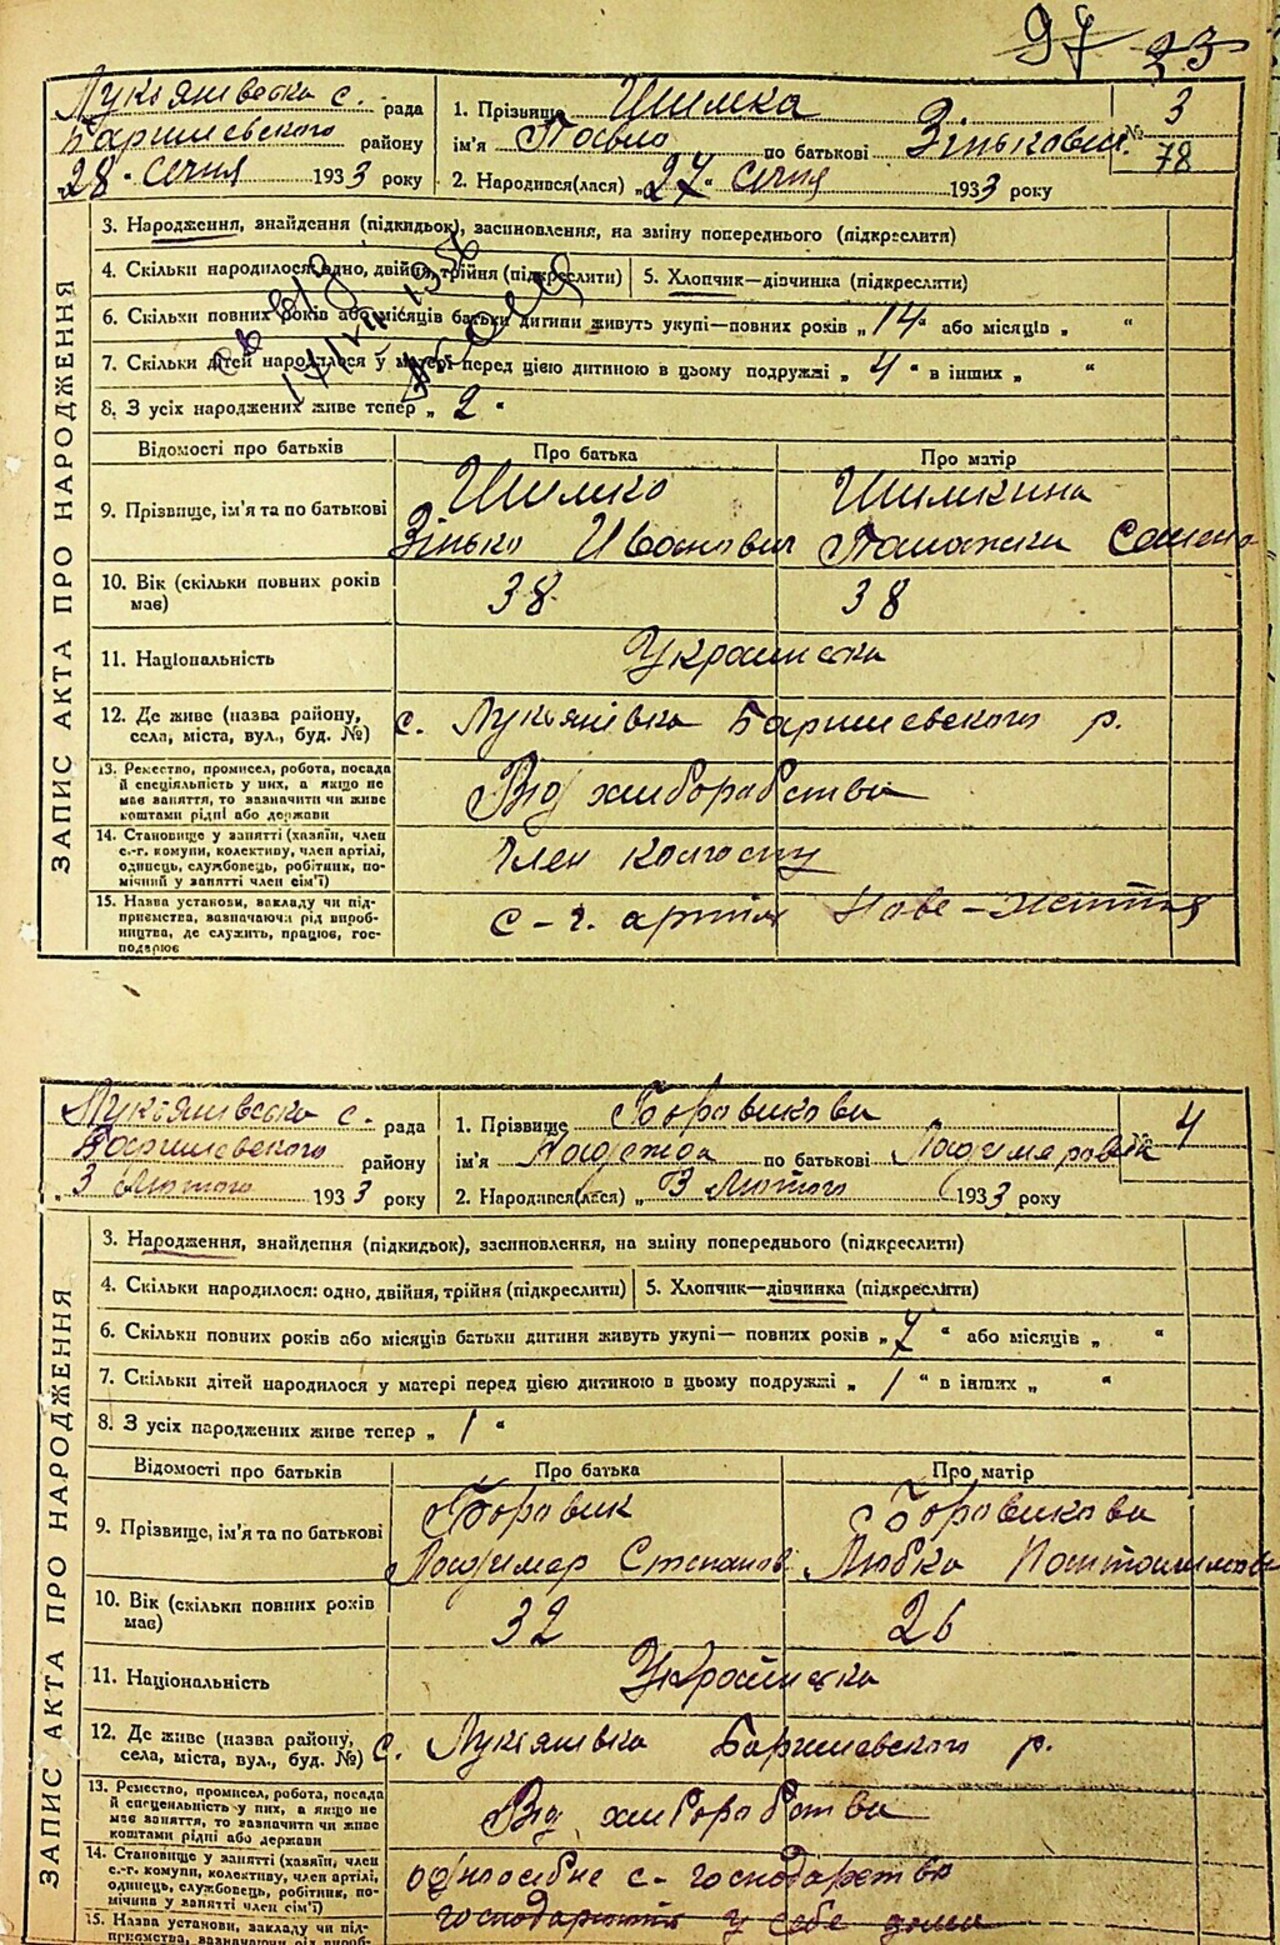 97 23
Лукьянивська с. рада
Баришевского району
"28" Січня 1933 року
1. Прізвище Шимка
ім'я Павло по батькові Зінькович.
№ 3
78
2. Народився(лася) "27" Січня 1933 року
ЗАПИС АКТА ПРО НАРОДЖЕННЯ
3. Народження, знайдення (підкидьок), засиновлення, на зміну попереднього (підкреслити)
4. Скільки народилося: одно, двійня, трійня (підкреслити) 5. Хлопчик—дівчинка (підкреслити)
6. Скільки повних років або місяців батьки дитини живуть укупі—повних років „ 14 " або місяців „ "
7. Скільки дітей народилося у матері перед цією дитиною в цьому подружжі „ 4 " в інших „ "
8. З усіх народжених живе тепер „ 2 "
Відомості про батьків Про батька Про матір
9. Прізвище, ім'я та по батькові
Шимко Шимкина
Зінько Иванович Палажка Самено
10. Вік (скільки повних років має) 38 38
11. Національність Украинска
12. Де живе (назва району, села, міста, вул., буд. №) с. Лукьянівка Баришевського р.
13. Ремество, промисел, робота, посада
й спеціяльність у них, а якщо не
має заняття, то зазначити чи живе
коштами рідні або держави
Від хліборобства
14. Становище у занятті (хазяїн, член
с.-г. комуни, колективу, член артілі,
одинець, службовець, робітник, по-
мічний у занятті член сім'ї)
Член колгоспу
15. Назва установи, закладу чи під-
приємства, зазначаючи рід вироб-
ництва, де служить, працює, гос-
подарює
с-г. артіль Нове-життя
Лукьянивська с. рада
Баришевского району
"3 Лютого 1933 року
1. Прізвище Боровикова
ім'я Надежда по батькові Ладимеровна
№ 4
2. Народився(лася) „ 3 Лютого 1933 року
ЗАПИС АКТА ПРО НАРОДЖЕННЯ
3. Народження, знайдення (підкидьок), засиновлення, на зміну попереднього (підкреслити)
4. Скільки народилося: одно, двійня, трійня (підкреслити) 5. Хлопчик—дівчинка (підкреслити)
6. Скільки повних років або місяців батьки дитини живуть укупі— повних років „ 7 " або місяців „ "
7. Скільки дітей народилося у матері перед цією дитиною в цьому подружжі „ 1 " в інших „ "
8. З усіх народжених живе тепер „ 1 "
Відомості про батьків Про батька Про матір
9. Прізвище, ім'я та по батькові
Боровик Боровикова
Ладимер Степанов Любка
10. Вік (скільки повних років має) 32 26
11. Національність Украинска
12. Де живе (назва району, села, міста, вул., буд. №) с. Лукьянівка Баришевского р.
13. Ремество, промисел, робота, посада
й спеціяльність у них, а якщо не
має заняття, то зазначити чи живе
коштами рідні або держави
Від хліборобства
14. Становище у занятті (хазяїн, член
с.-г. комуни, колективу, член артілі,
одинець, службовець, робітник, по-
мічний у занятті член сім'ї)
одноосібне с-господарство
15. Назва установи, закладу чи під-
приємства, зазначаючи рід вироб-
господарюють у себе дома